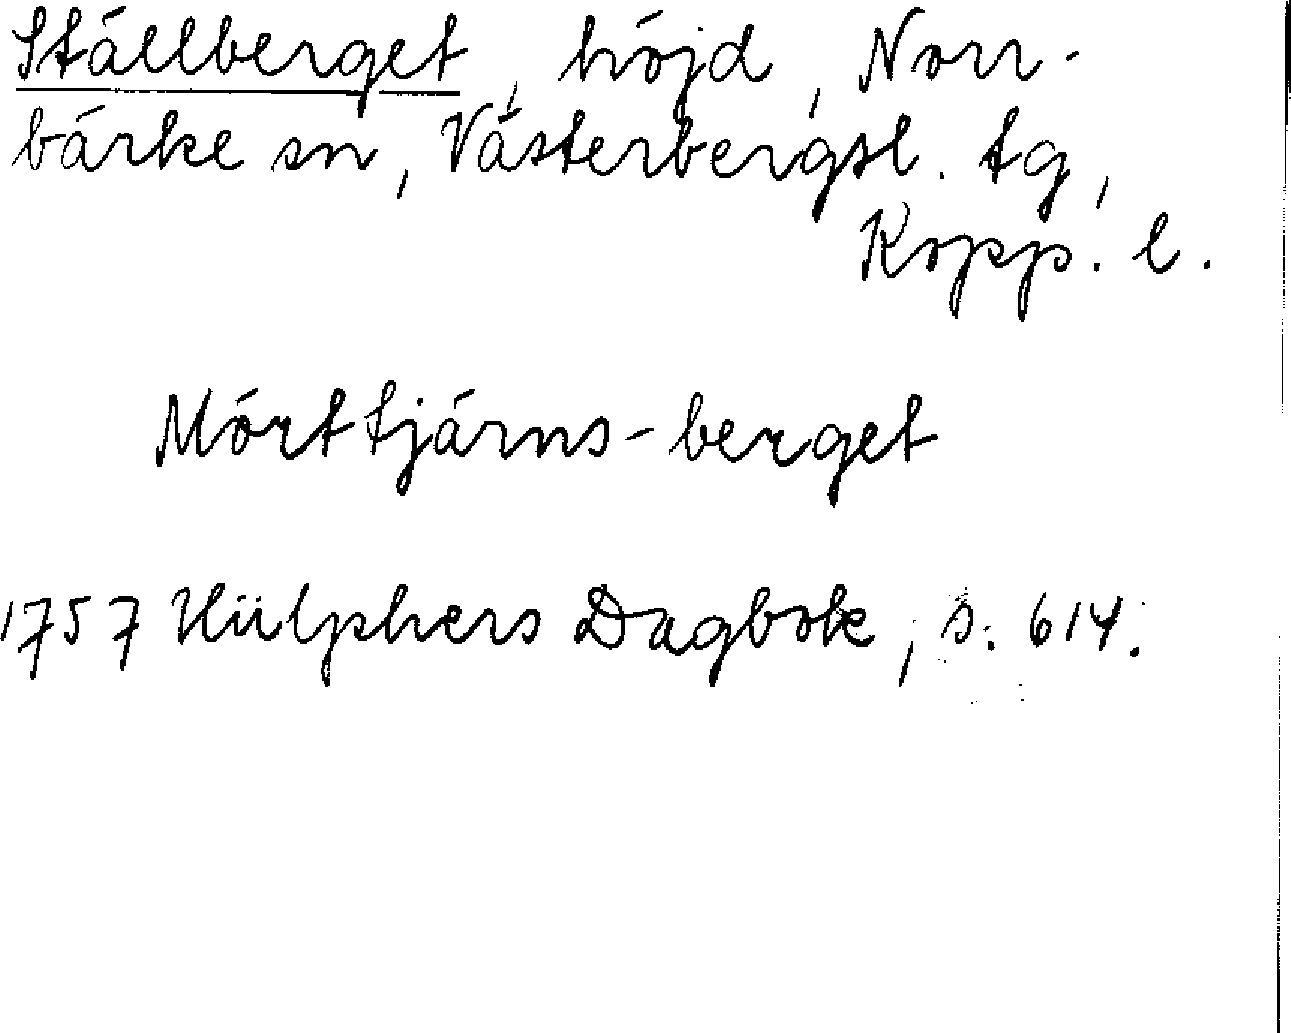 Ställberget, höjd, Norr-
bärke sn, Västerbergsl. tg,
Kopp. l.
Mörttjärns-berget
1757 Hülphers Dagbok, s. 614.